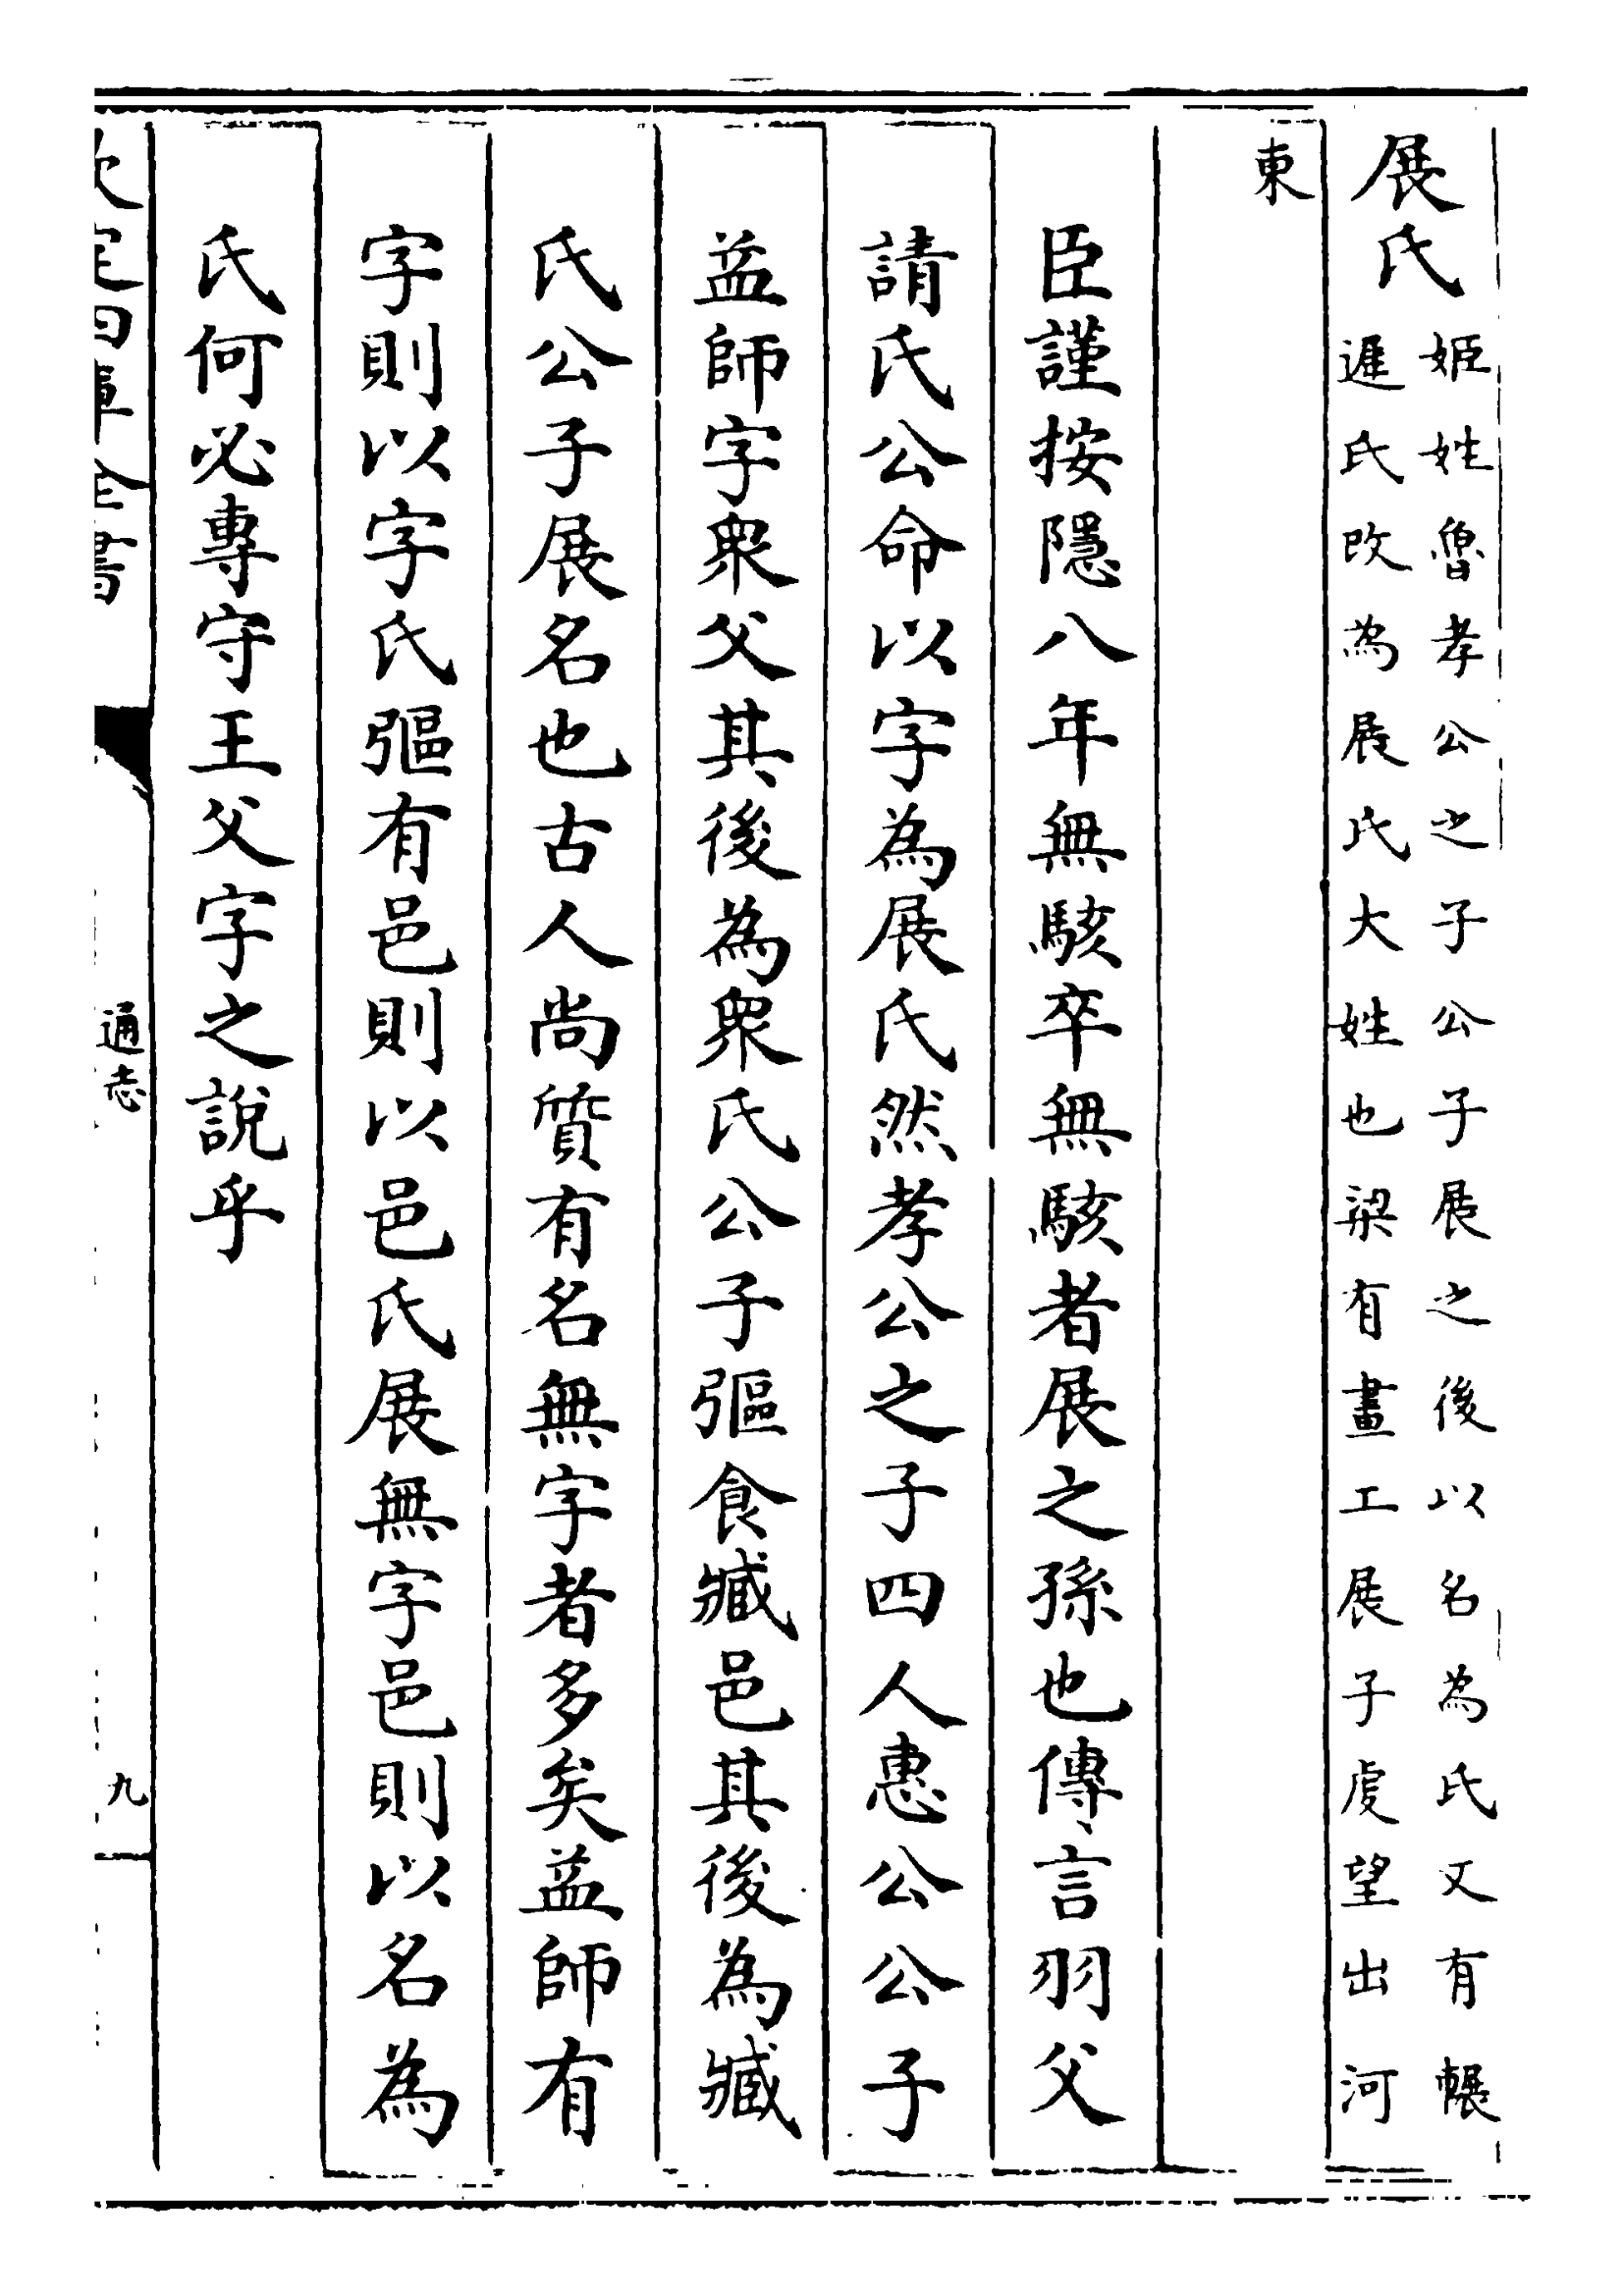 展氏
姬姓魯孝公之子公子展之後以名為氏又有輾
遲氏改為展氏大姓也梁有畫工展子虔望出河
東
臣謹按隱八年無駭卒無駭者展之孫也傳言羽父
請氏公命以字為展氏然孝公之子四人惠公公子
益師字衆父其後為衆氏公子彄食臧邑其後為臧
氏公子展名也古人尚質有名無字者多矣益師有
字則以字氏彄有邑則以邑氏展無字邑則以名為
氏何必專守王父字之說乎
欽定四庫全書
通志
九